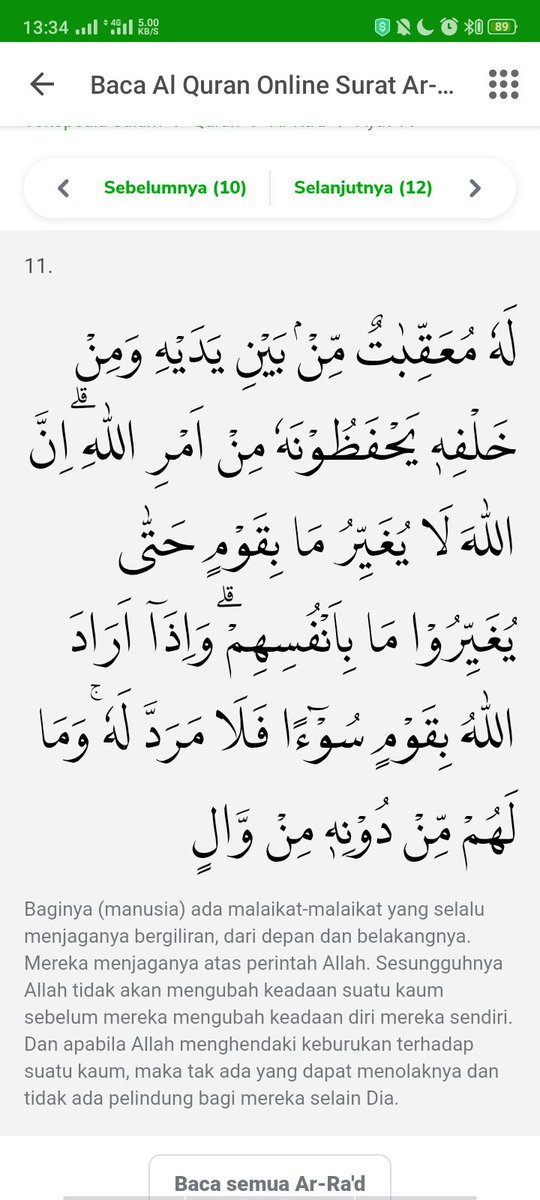 13:34 4G 5.00 KB/S 89
Baca Al Quran Online Surat Ar-...
Sebelumnya (10) Selanjutnya (12)
11.
لَهٗ مُعَقِّبٰتٌ مِّنْۢ بَيْنِ يَدَيْهِ وَمِنْ
خَلْفِهٖ يَحْفَظُوْنَهٗ مِنْ اَمْرِ اللّٰهِ ۗاِنَّ
اللّٰهَ لَا يُغَيِّرُ مَا بِقَوْمٍ حَتّٰى
يُغَيِّرُوْا مَا بِاَنْفُسِهِمْۗ وَاِذَآ اَرَادَ
اللّٰهُ بِقَوْمٍ سُوْۤءًا فَلَا مَرَدَّ لَهٗ ۚوَمَا
لَهُمْ مِّنْ دُوْنِهٖ مِنْ وَّالٍ
Baginya (manusia) ada malaikat-malaikat yang selalu
menjaganya bergiliran, dari depan dan belakangnya.
Mereka menjaganya atas perintah Allah. Sesungguhnya
Allah tidak akan mengubah keadaan suatu kaum
sebelum mereka mengubah keadaan diri mereka sendiri.
Dan apabila Allah menghendaki keburukan terhadap
suatu kaum, maka tak ada yang dapat menolaknya dan
tidak ada pelindung bagi mereka selain Dia.
Baca semua Ar-Ra'd